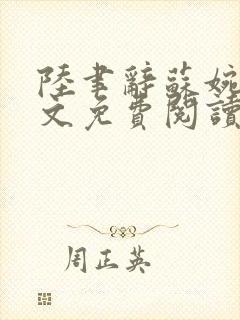 陸聿辭蘇婉
文免費閱讀
周正英